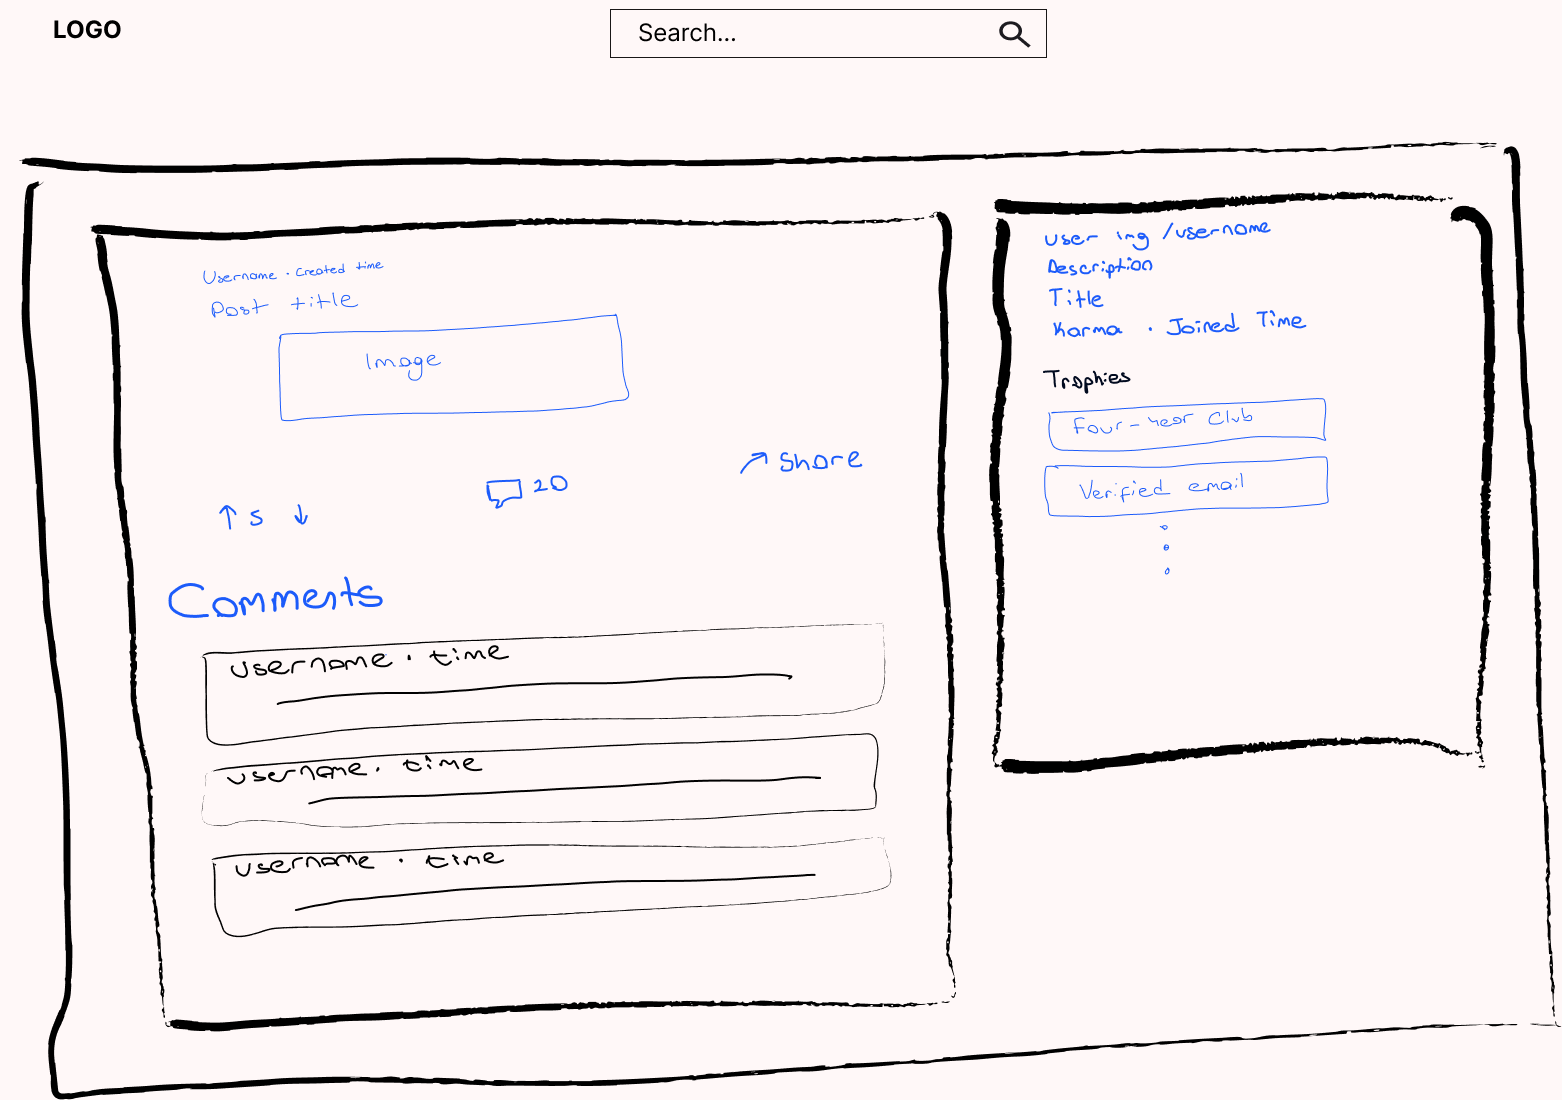 LOGO
Search...
Username · Created time
Post title
Image
↑ 5 ↓
20
↗ Share
Comments
username · time
username · time
username · time
User img /username
Description
Title
Karma · Joined Time
Trophies
Four-Year Club
Verified email